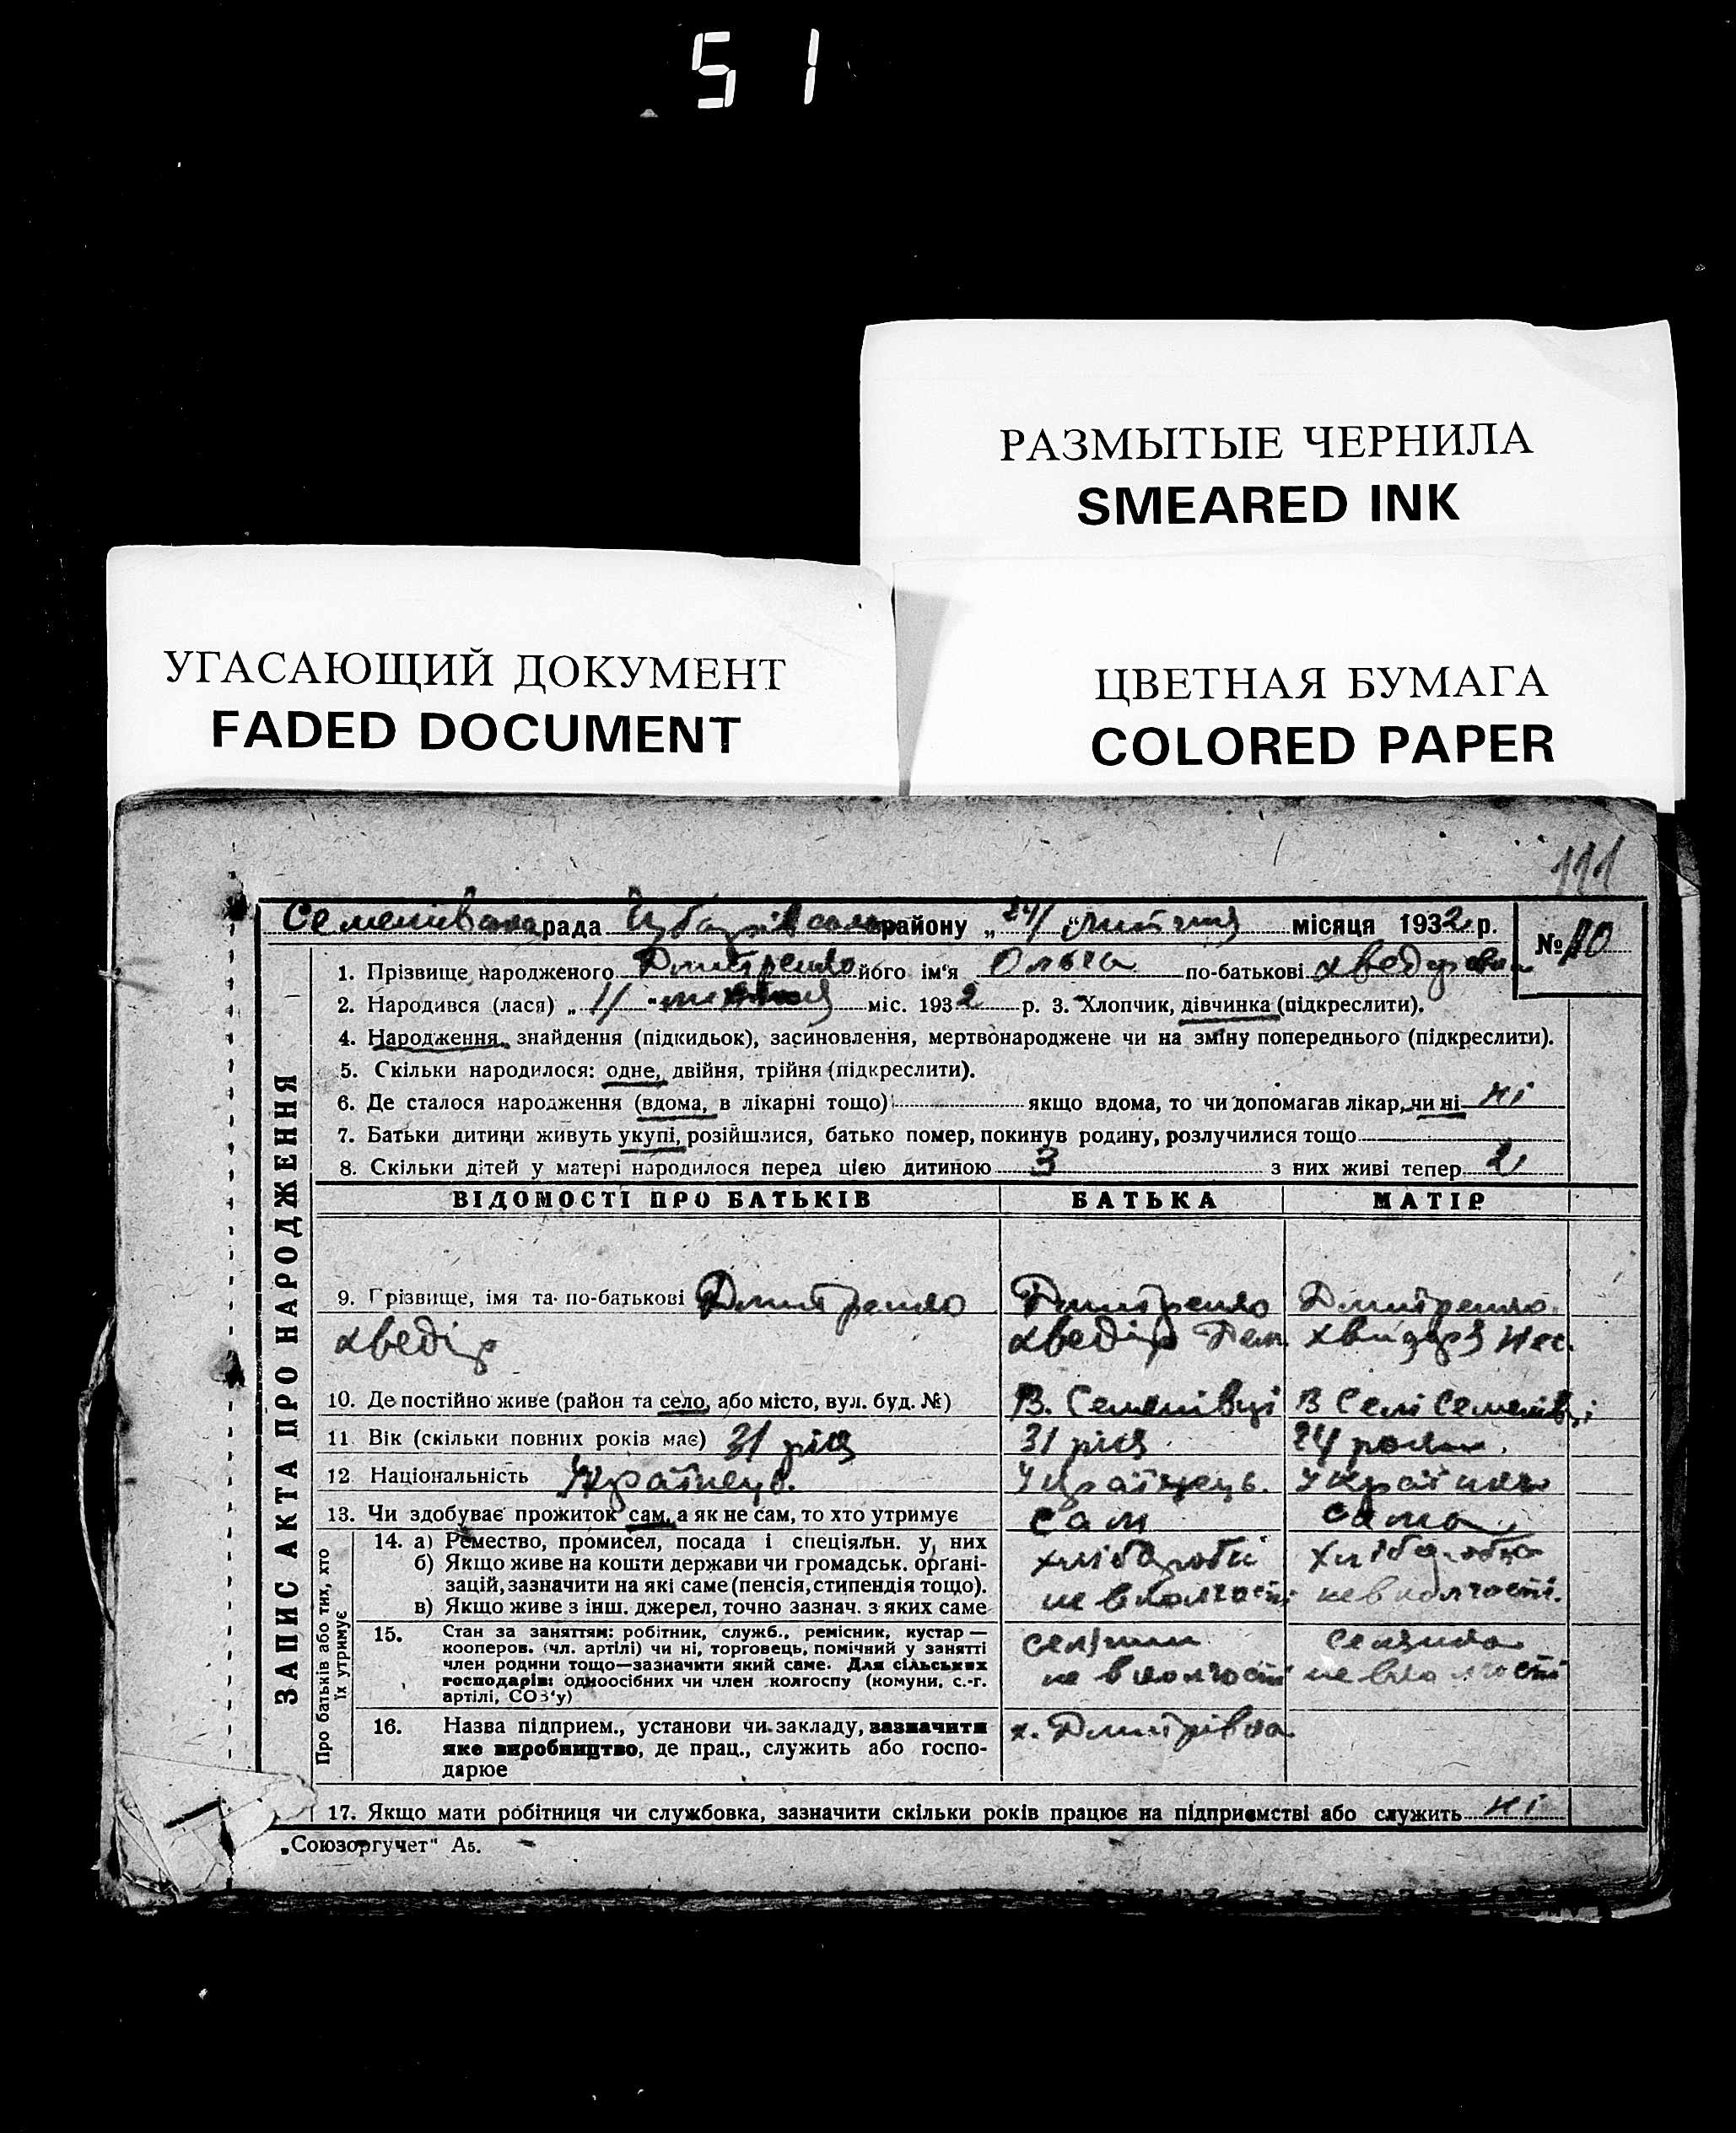 51
РАЗМЫТЫЕ ЧЕРНИЛА
SMEARED INK
УГАСАЮЩИЙ ДОКУМЕНТ
FADED DOCUMENT
ЦВЕТНАЯ БУМАГА
COLORED PAPER
111
рада району „24“ місяця 1932 р.
№
ЗАПИС АКТА ПРО НАРОДЖЕННЯ
1. Прізвище народженого Дмитренко його ім'я Ольга по-батькові
2. Народився (лася) „ міс. 1932 р. 3. Хлопчик, дівчинка (підкреслити).
4. Народження, знайдення (підкидьок), засиновлення, мертвонароджене чи на зміну попереднього (підкреслити).
5. Скільки народилося: одне, двійня, трійня (підкреслити).
6. Де сталося народження (вдома, в лікарні тощо) якщо вдома, то чи допомагав лікар, чи ні ні
7. Батьки дитини живуть укупі, розійшлися, батько помер, покинув родину, розлучилися тощо
8. Скільки дітей у матері народилося перед цією дитиною 3 з них живі тепер 2
ВІДОМОСТІ ПРО БАТЬКІВ БАТЬКА МАТІР
9. Грізвище, імя та по-батькові Дмитренко Дмитренко Дмитренко
хведір хведір
10. Де постійно живе (район та село, або місто, вул. буд. №) В. Семенівці В селі Семенівці
11 Вік (скільки повних років має) 31 рік 31 рік 24 роки
12 Національність Українець. Українець. Українка
13. Чи здобуває прожиток сам, а як не сам, то хто утримує сам сама
Про батьків або тих, хто
їх утримує
14. а) Ремество, промисел, посада і спеціяльн. у них
б) Якщо живе на кошти держави чи громадськ. органі-
зацій, зазначити на які саме (пенсія, стипендія тощо).
в) Якщо живе з інш. джерел, точно зазнач. з яких саме
15. Стан за заняттям: робітник, служб., ремісник, кустар —
кооперов. (чл. артілі) чи ні, торговець, помічний у занятті
член родини тощо—зазначити який саме. Для сільських
господарів: одноосібних чи член колгоспу (комуни, с.-г.
артілі, СОЗ'у)
16. Назва підприєм., установи чи закладу, зазначити
яке виробництво, де прац., служить або госпо-
дарює
х. Дмитрівка
17. Якщо мати робітниця чи службовка, зазначити скільки років працює на підприємстві або служить ні
„Союзоргучет" А5.